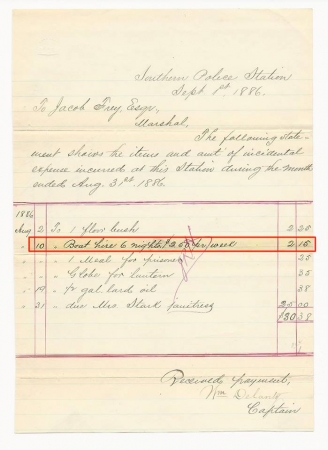 Southern Police Station
Sept 1st. 1886.
To Jacob Frey Esqr.
Marshal,
The following state-
ment shows the items and amt of incidental
expense incurred at this Station during the month
ended Aug. 31st. 1886
1886
Aug 2 To 1 flow brush 25
10 " Boat hire 6 nights $2.50 per week 2 15
" " 1 Meal for prisoner 25
" " Globe for lantern 35
19 " gal lard oil 38
31 " due Mrs Stark Janitress 25 00
$30 38
Received payment,
Wm Delanty
Captain